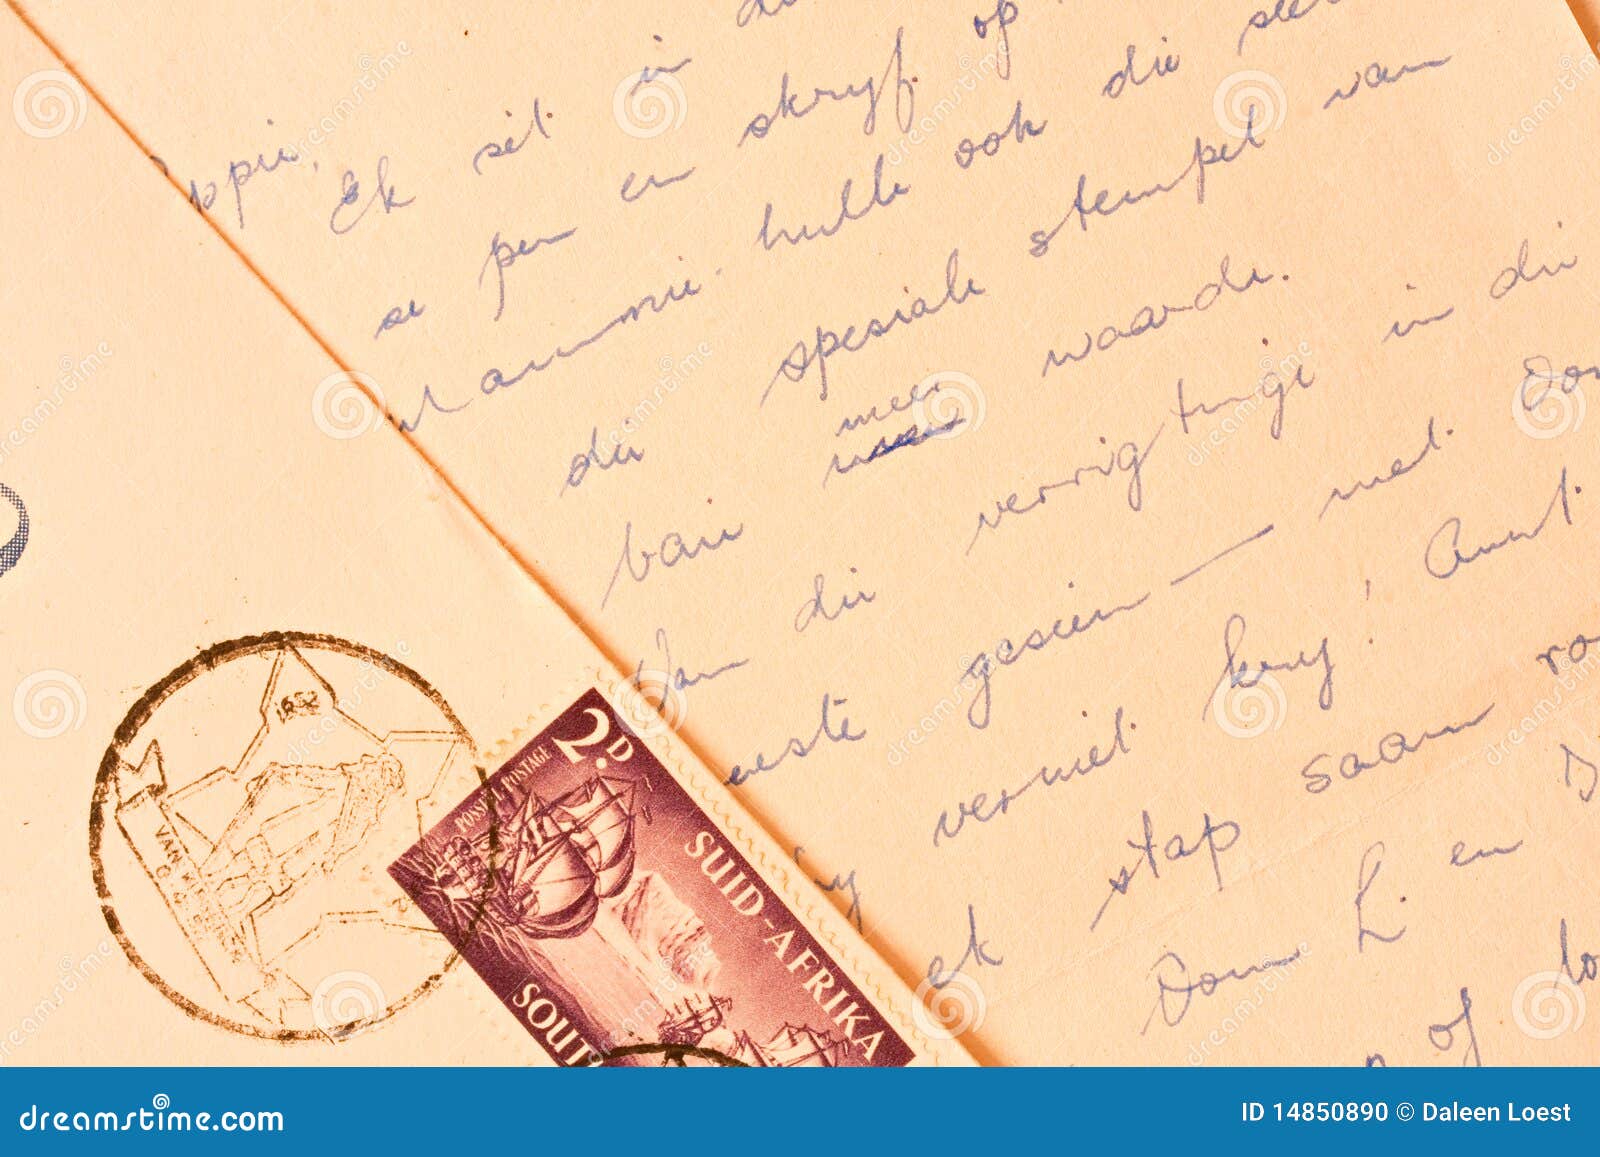 Ek sit in
se pen en skryf op
Mammie. hulle ook die
die spesiale stempel van
baie meer waarde.
Van die verrigtinge in die
eeste gesien — met
vermet kry! Aunt
ek stap saam
Oom L. en
of
1852
VAN RIE
2D.
POSSEEL POSTAGE
SUID-AFRIKA
SOUT
dreamstime.com
ID 14850890 © Daleen Loest